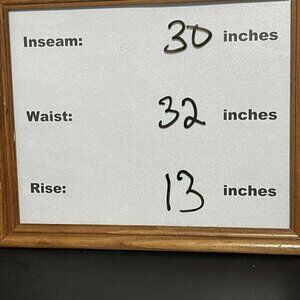 Inseam: 30 inches
Waist: 32 inches
Rise: 13 inches